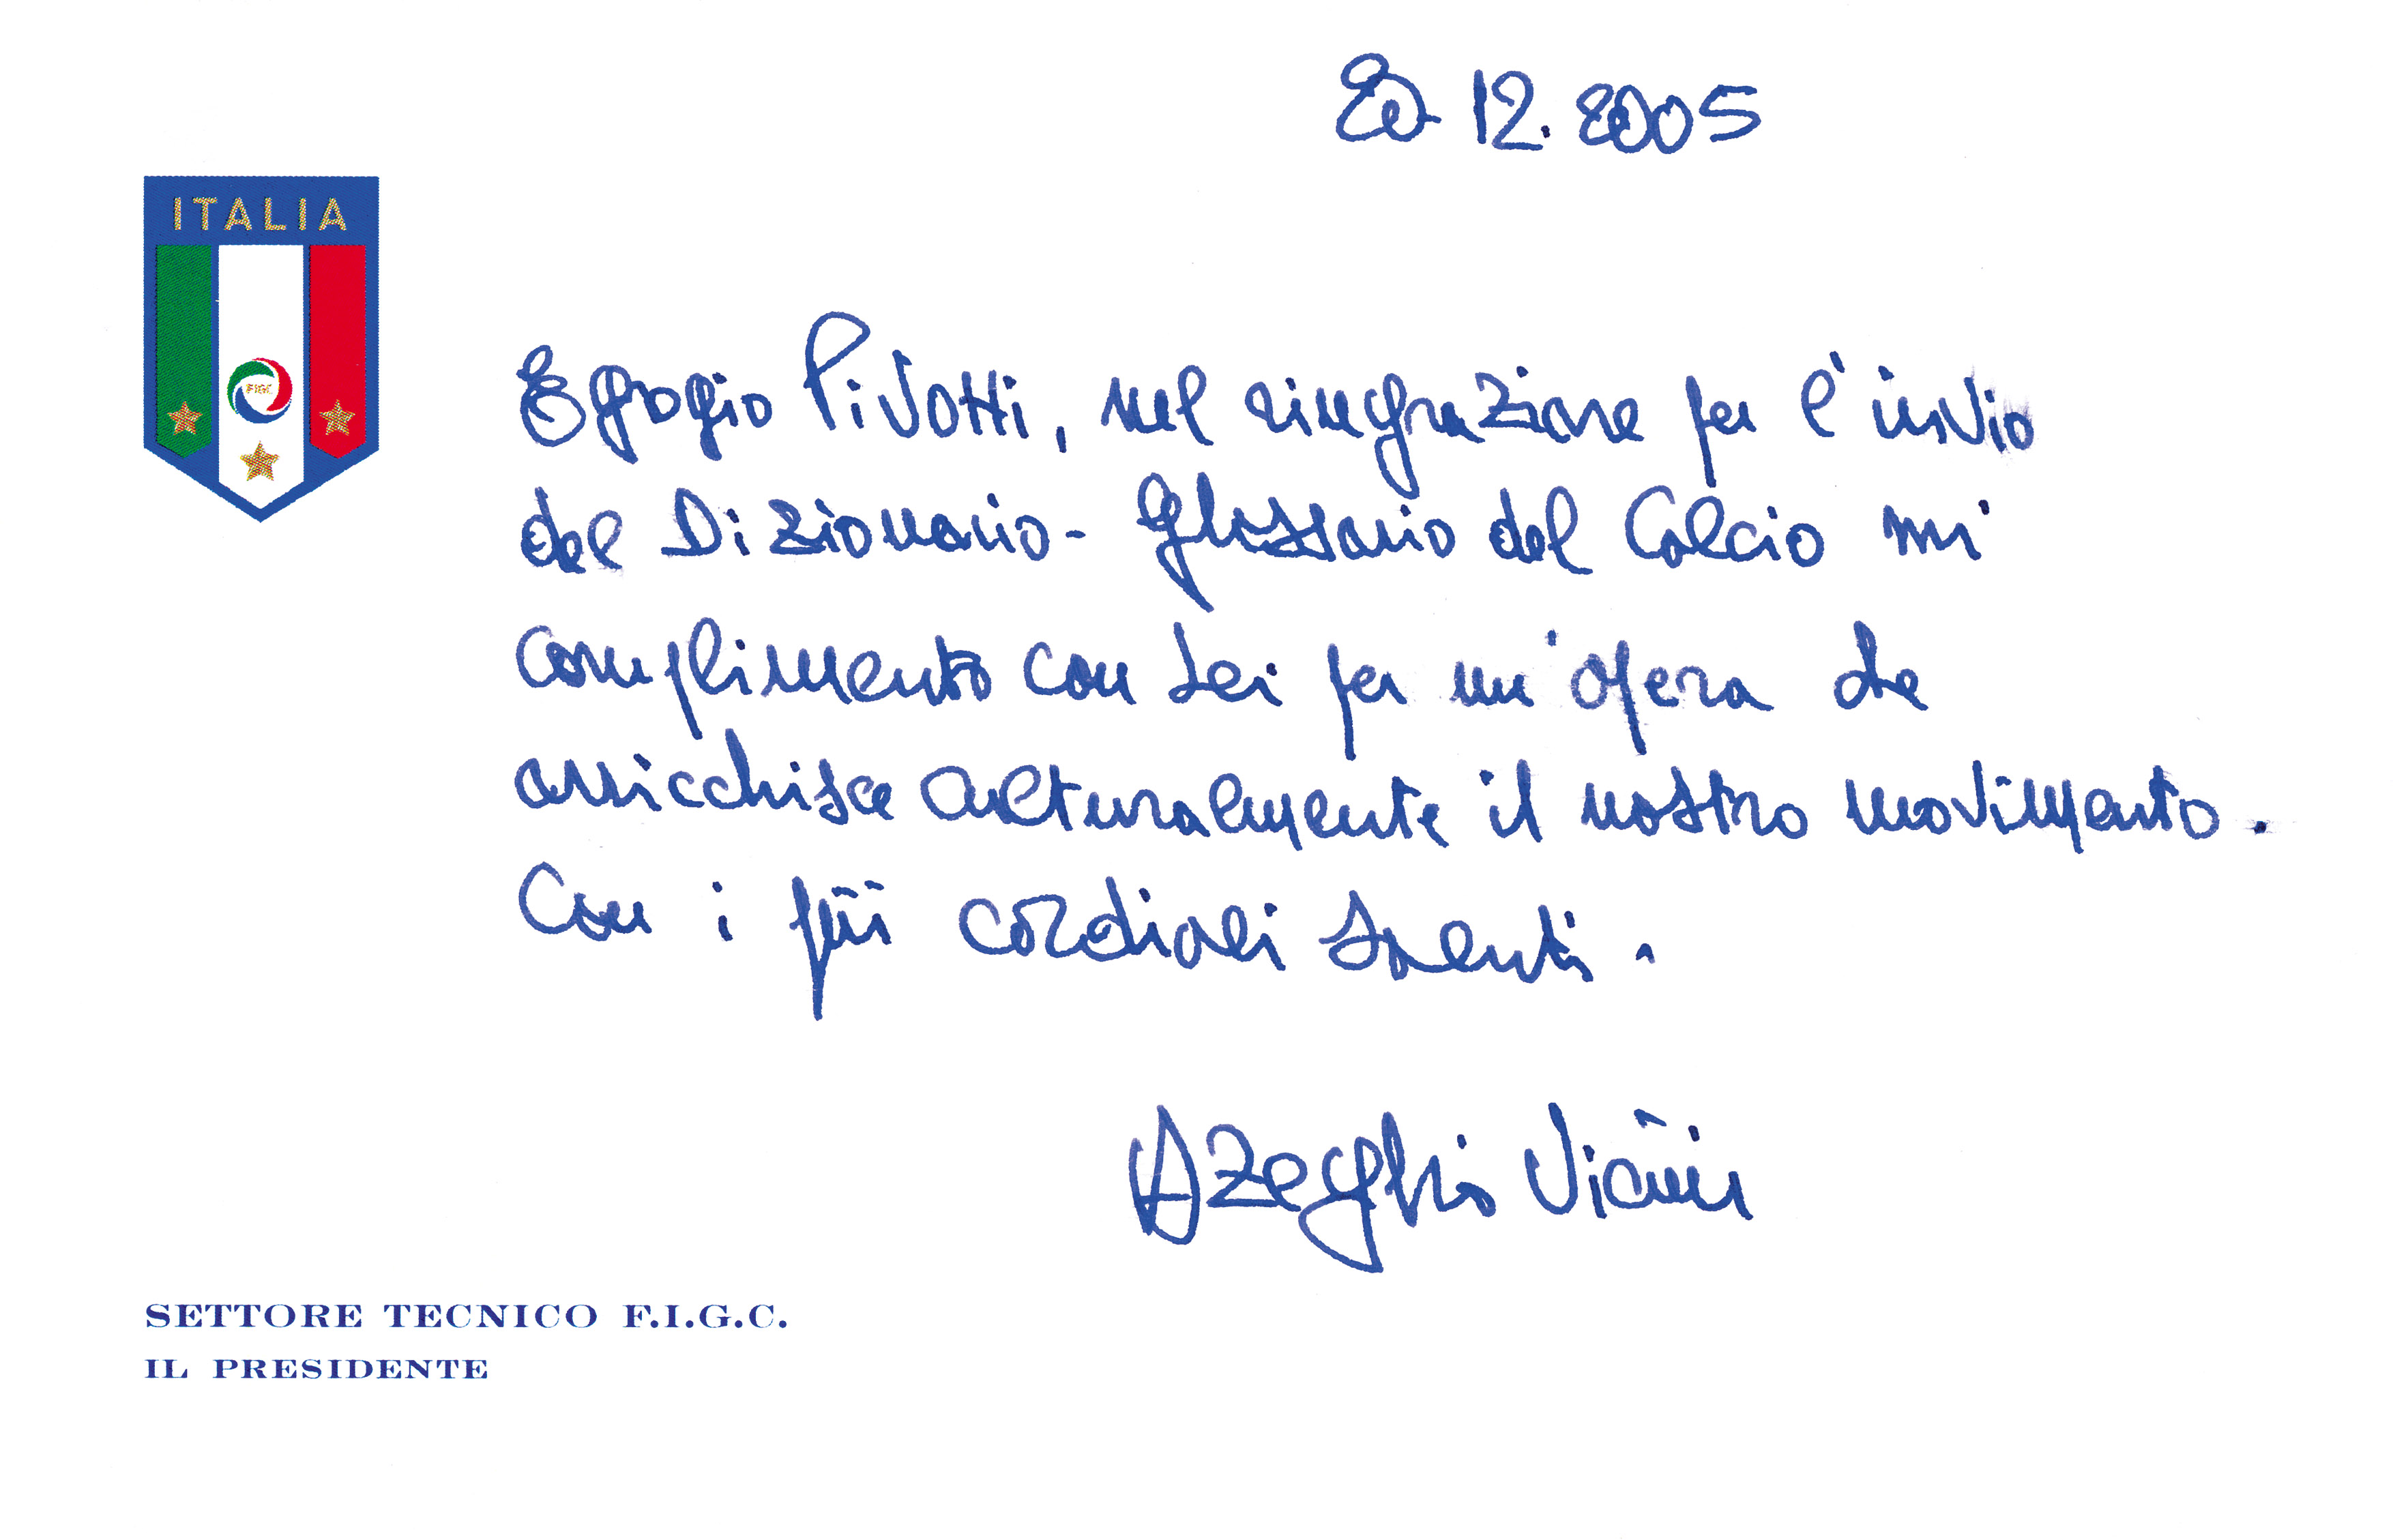 20 12.2005
ITALIA
FIGC
Egregio Pivotti, nel ringraziare per l'invio
del Dizionario-Glossario del Calcio mi
complimento con Lei per un'opera che
arricchisce culturalmente il nostro movimento.
Con i più cordiali saluti.
Azeglio Vicini
SETTORE TECNICO F.I.G.C.
IL PRESIDENTE